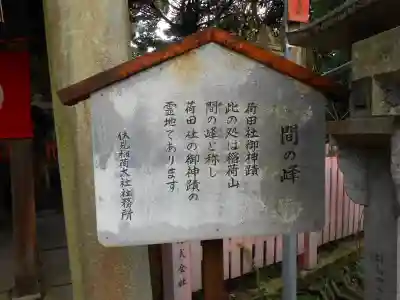 間の峰
荷田社御神蹟
此の処は稲荷山
間の峰と称し
荷田社の御神蹟の
霊地であります
伏見稲荷大社社務所